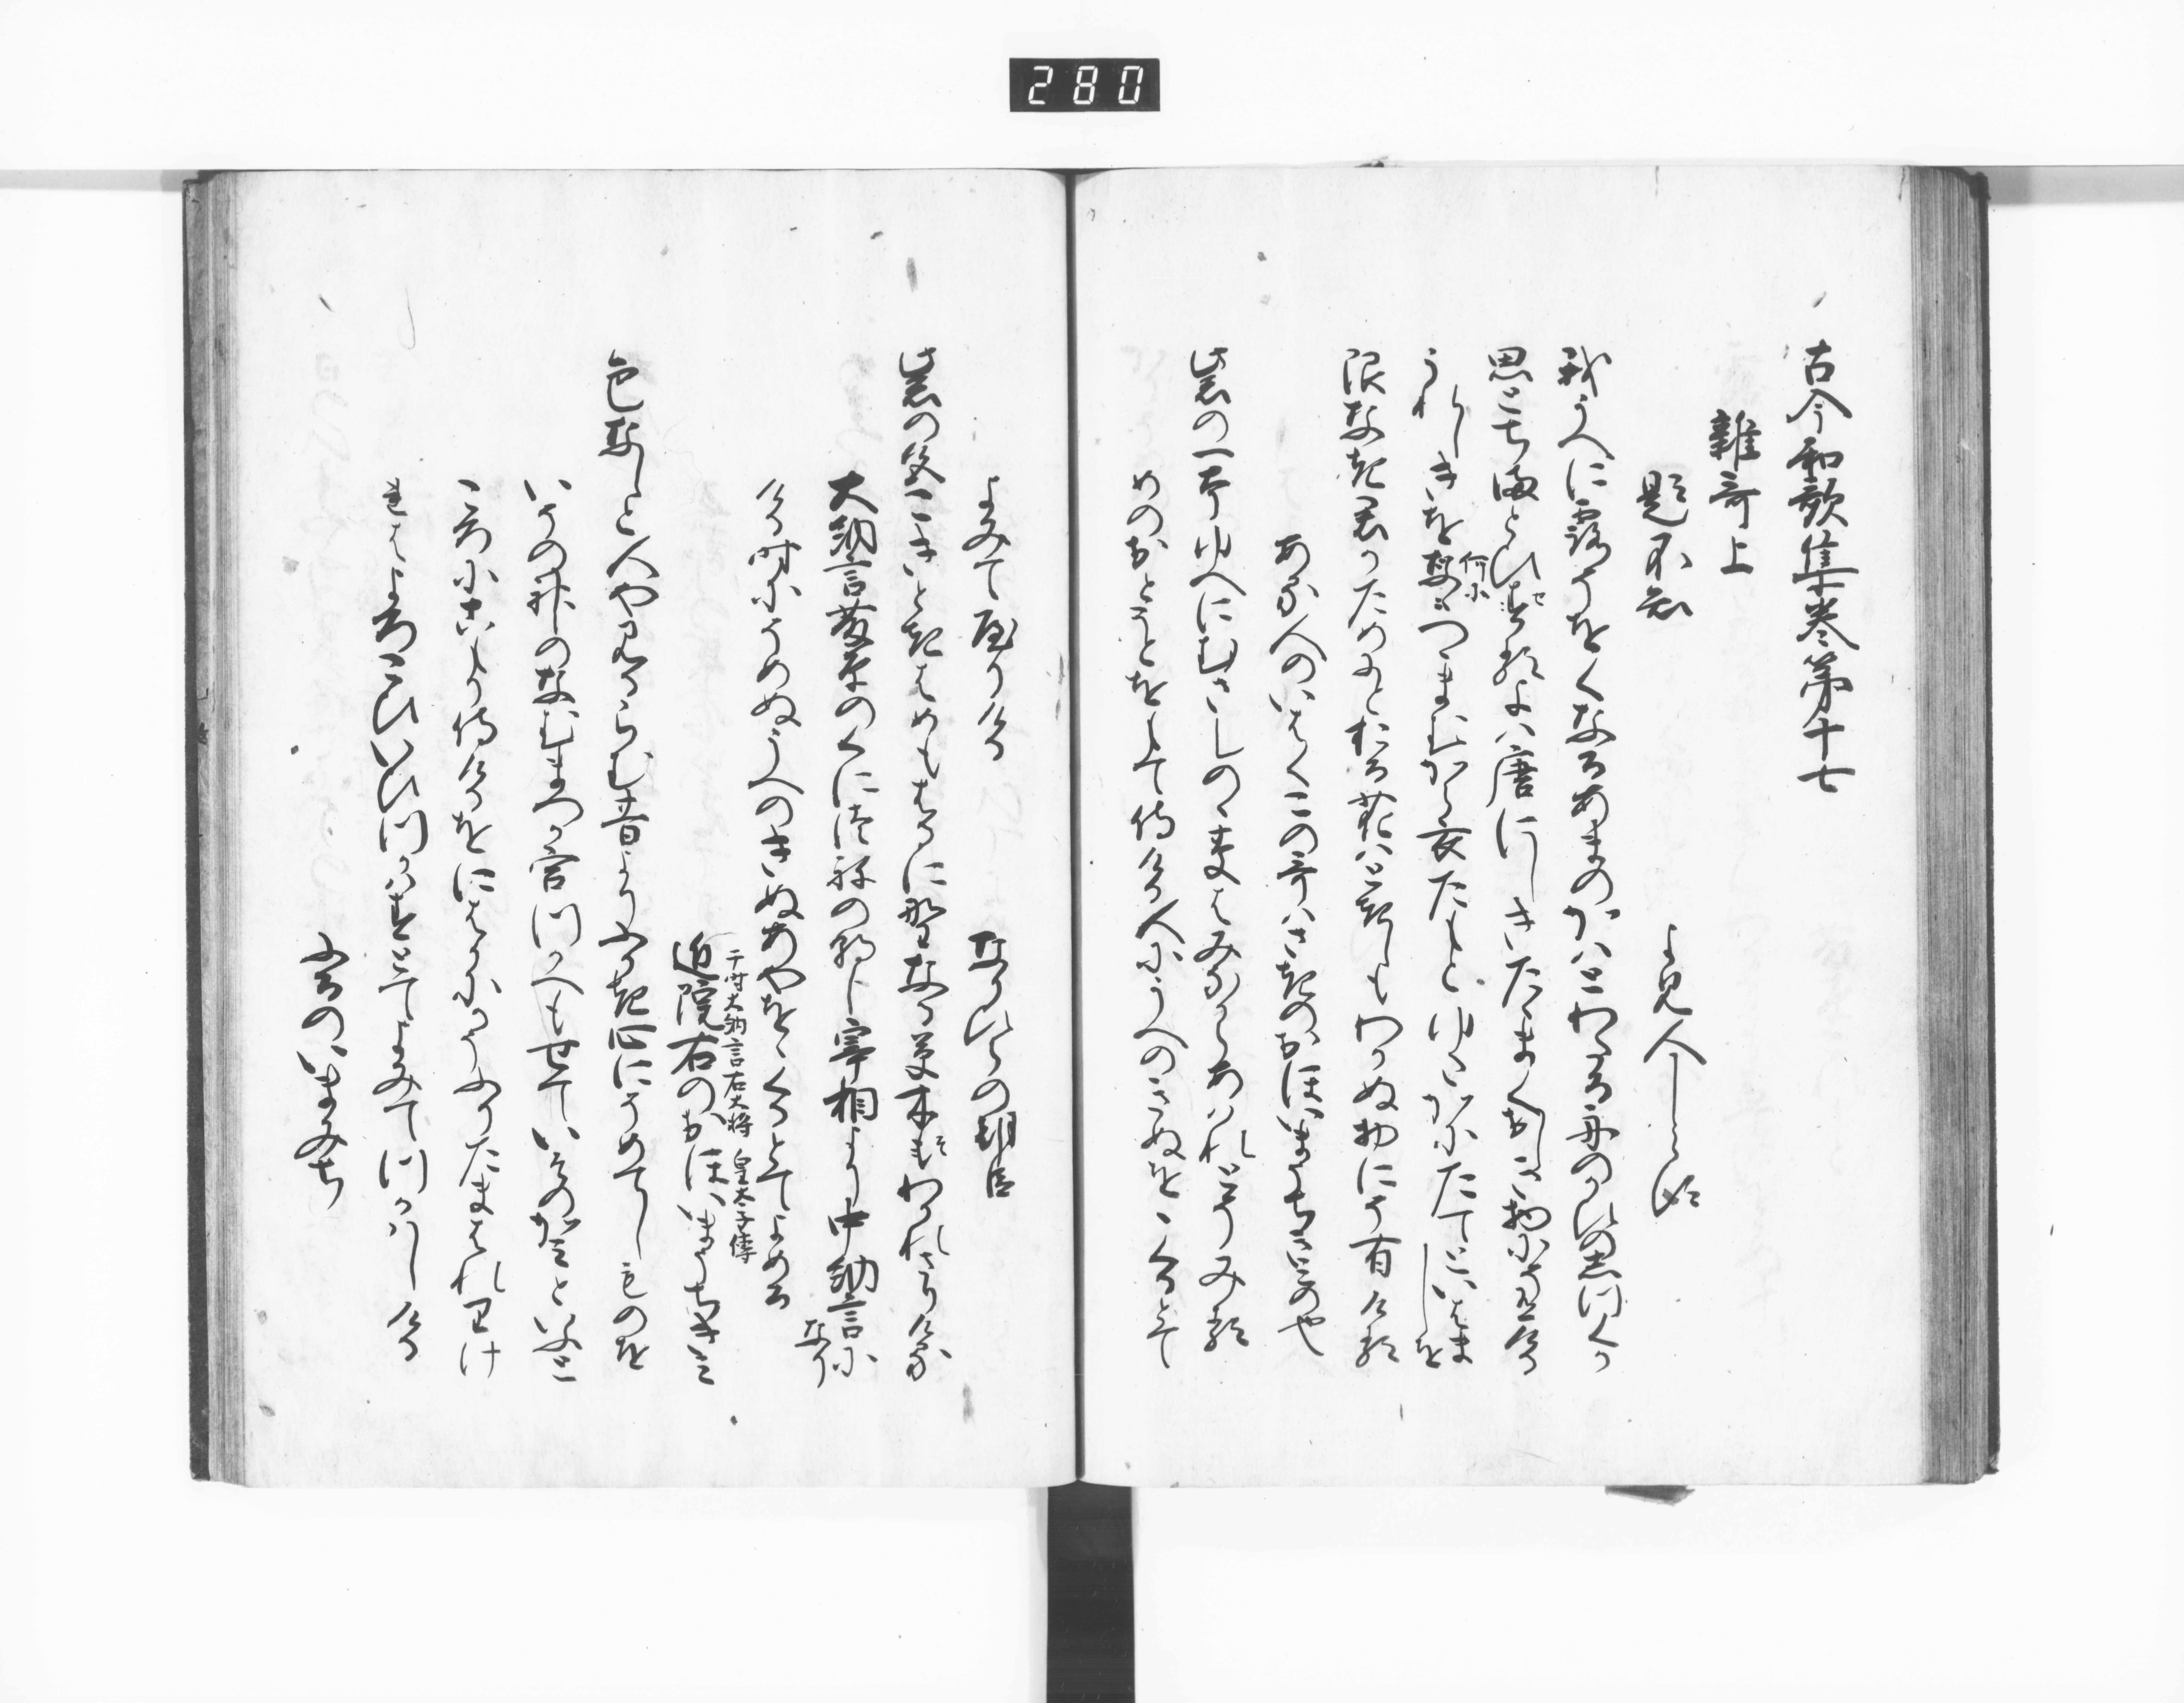 280
古今和歌集巻第十七
雑哥上
題不知
よ見人しらす
我うへに露そをくなるあまのかはとわたる舟のかいの思つくか
思とちまとゐせる夜は唐にしきたたまくおしき物にそ有ける
うれしきを何につつまむから衣たもとゆたかにたてといはましを
限なき君かためにとおる花はときしもわかぬ物にそ有ける
ある人のいはくこの哥はさきのおほいまうち君のや
紫の一本ゆへにむさしのの草はみなからあはれとそみる
めのおとうとをもて侍ける人にうへのきぬををくるとて
よみてやりける
なりひらの朝臣
紫の色こき時はめもはるに野なる草木そわかれさりける
大納言藤原のくにつねの朝臣宰相より中納言に
なり
ける時にそめぬうへのきぬあやををくるとてよめる
于時大納言右大将 皇太子傳
近院右のおほいまうちきみ
色なしと人やみるらむ昔よりふかき心にそめてしものを
いそのかみのなむまつか宮つかへもせていそのかみといふと
ころにこもり侍けるをにはかにかうふりたまはれりけ
れはよろこひいひつかはすとてよみてつかはしける
ふるのいまみち